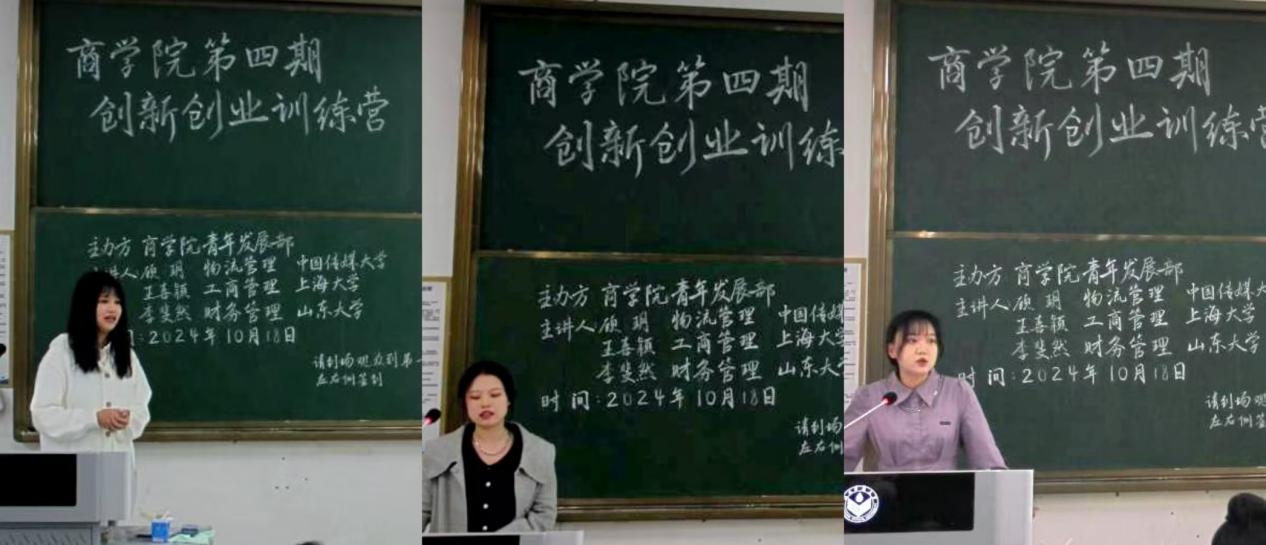 商学院第四期
创新创业训练营
主办方 商学院青年发展部
讲人 顾玥 物流管理 中国传媒大学
王喜颖 工商管理 上海大学
李斐然 财务管理 山东大学
:2024年10月18日
请到场观众到第一
左右侧签到
商学院第四期
创新创业训练
主办方 商学院青年发展部
主讲人 顾玥 物流管理 中国传媒
王喜颖 工商管理 上海大
李斐然 财务管理 山东大
时间:2024年10月18日
请到场
左右侧
商学院第四期
创新创业训练营
主办方 商学院青年发展部
主讲人 顾玥 物流管理 中国传媒大
王喜颖 工商管理 上海大学
李斐然 财务管理 山东大学
时间:2024年10月18日
请到场观
左右侧签